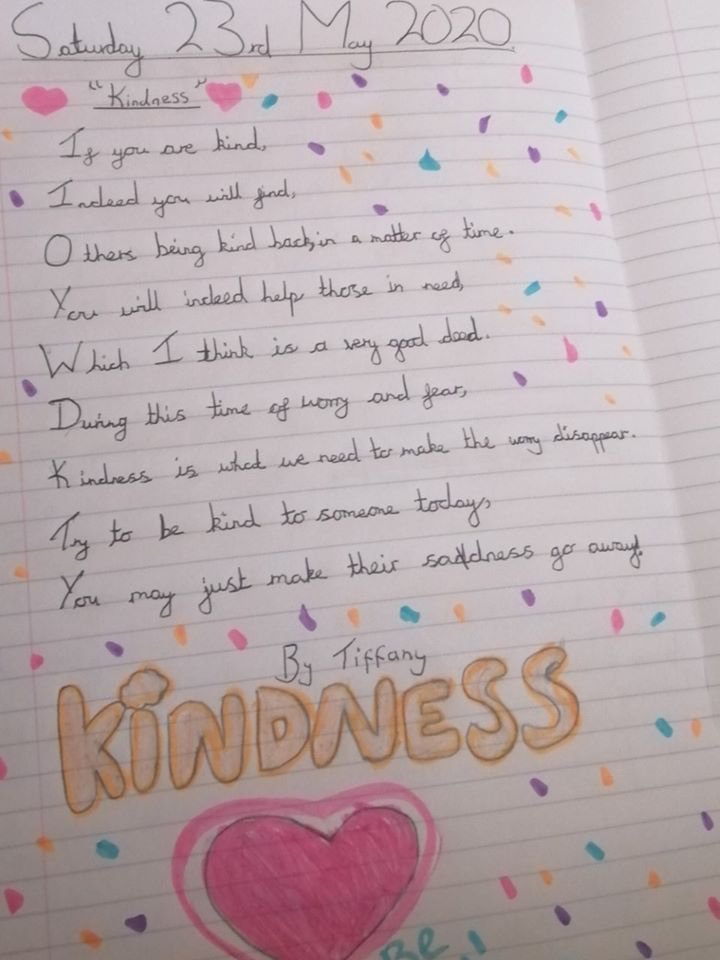 Saturday 23rd May 2020
"Kindness"
If you are kind,
Indeed you will find,
Others being kind back, in a matter of time.
You will indeed help those in need,
Which I think is a very good deed.
During this time of worry and fear,
Kindness is what we need to make the worry disappear.
Try to be kind to someone today,
You may just make their saddness go away!
By Tiffany
KiNDNESS
Be